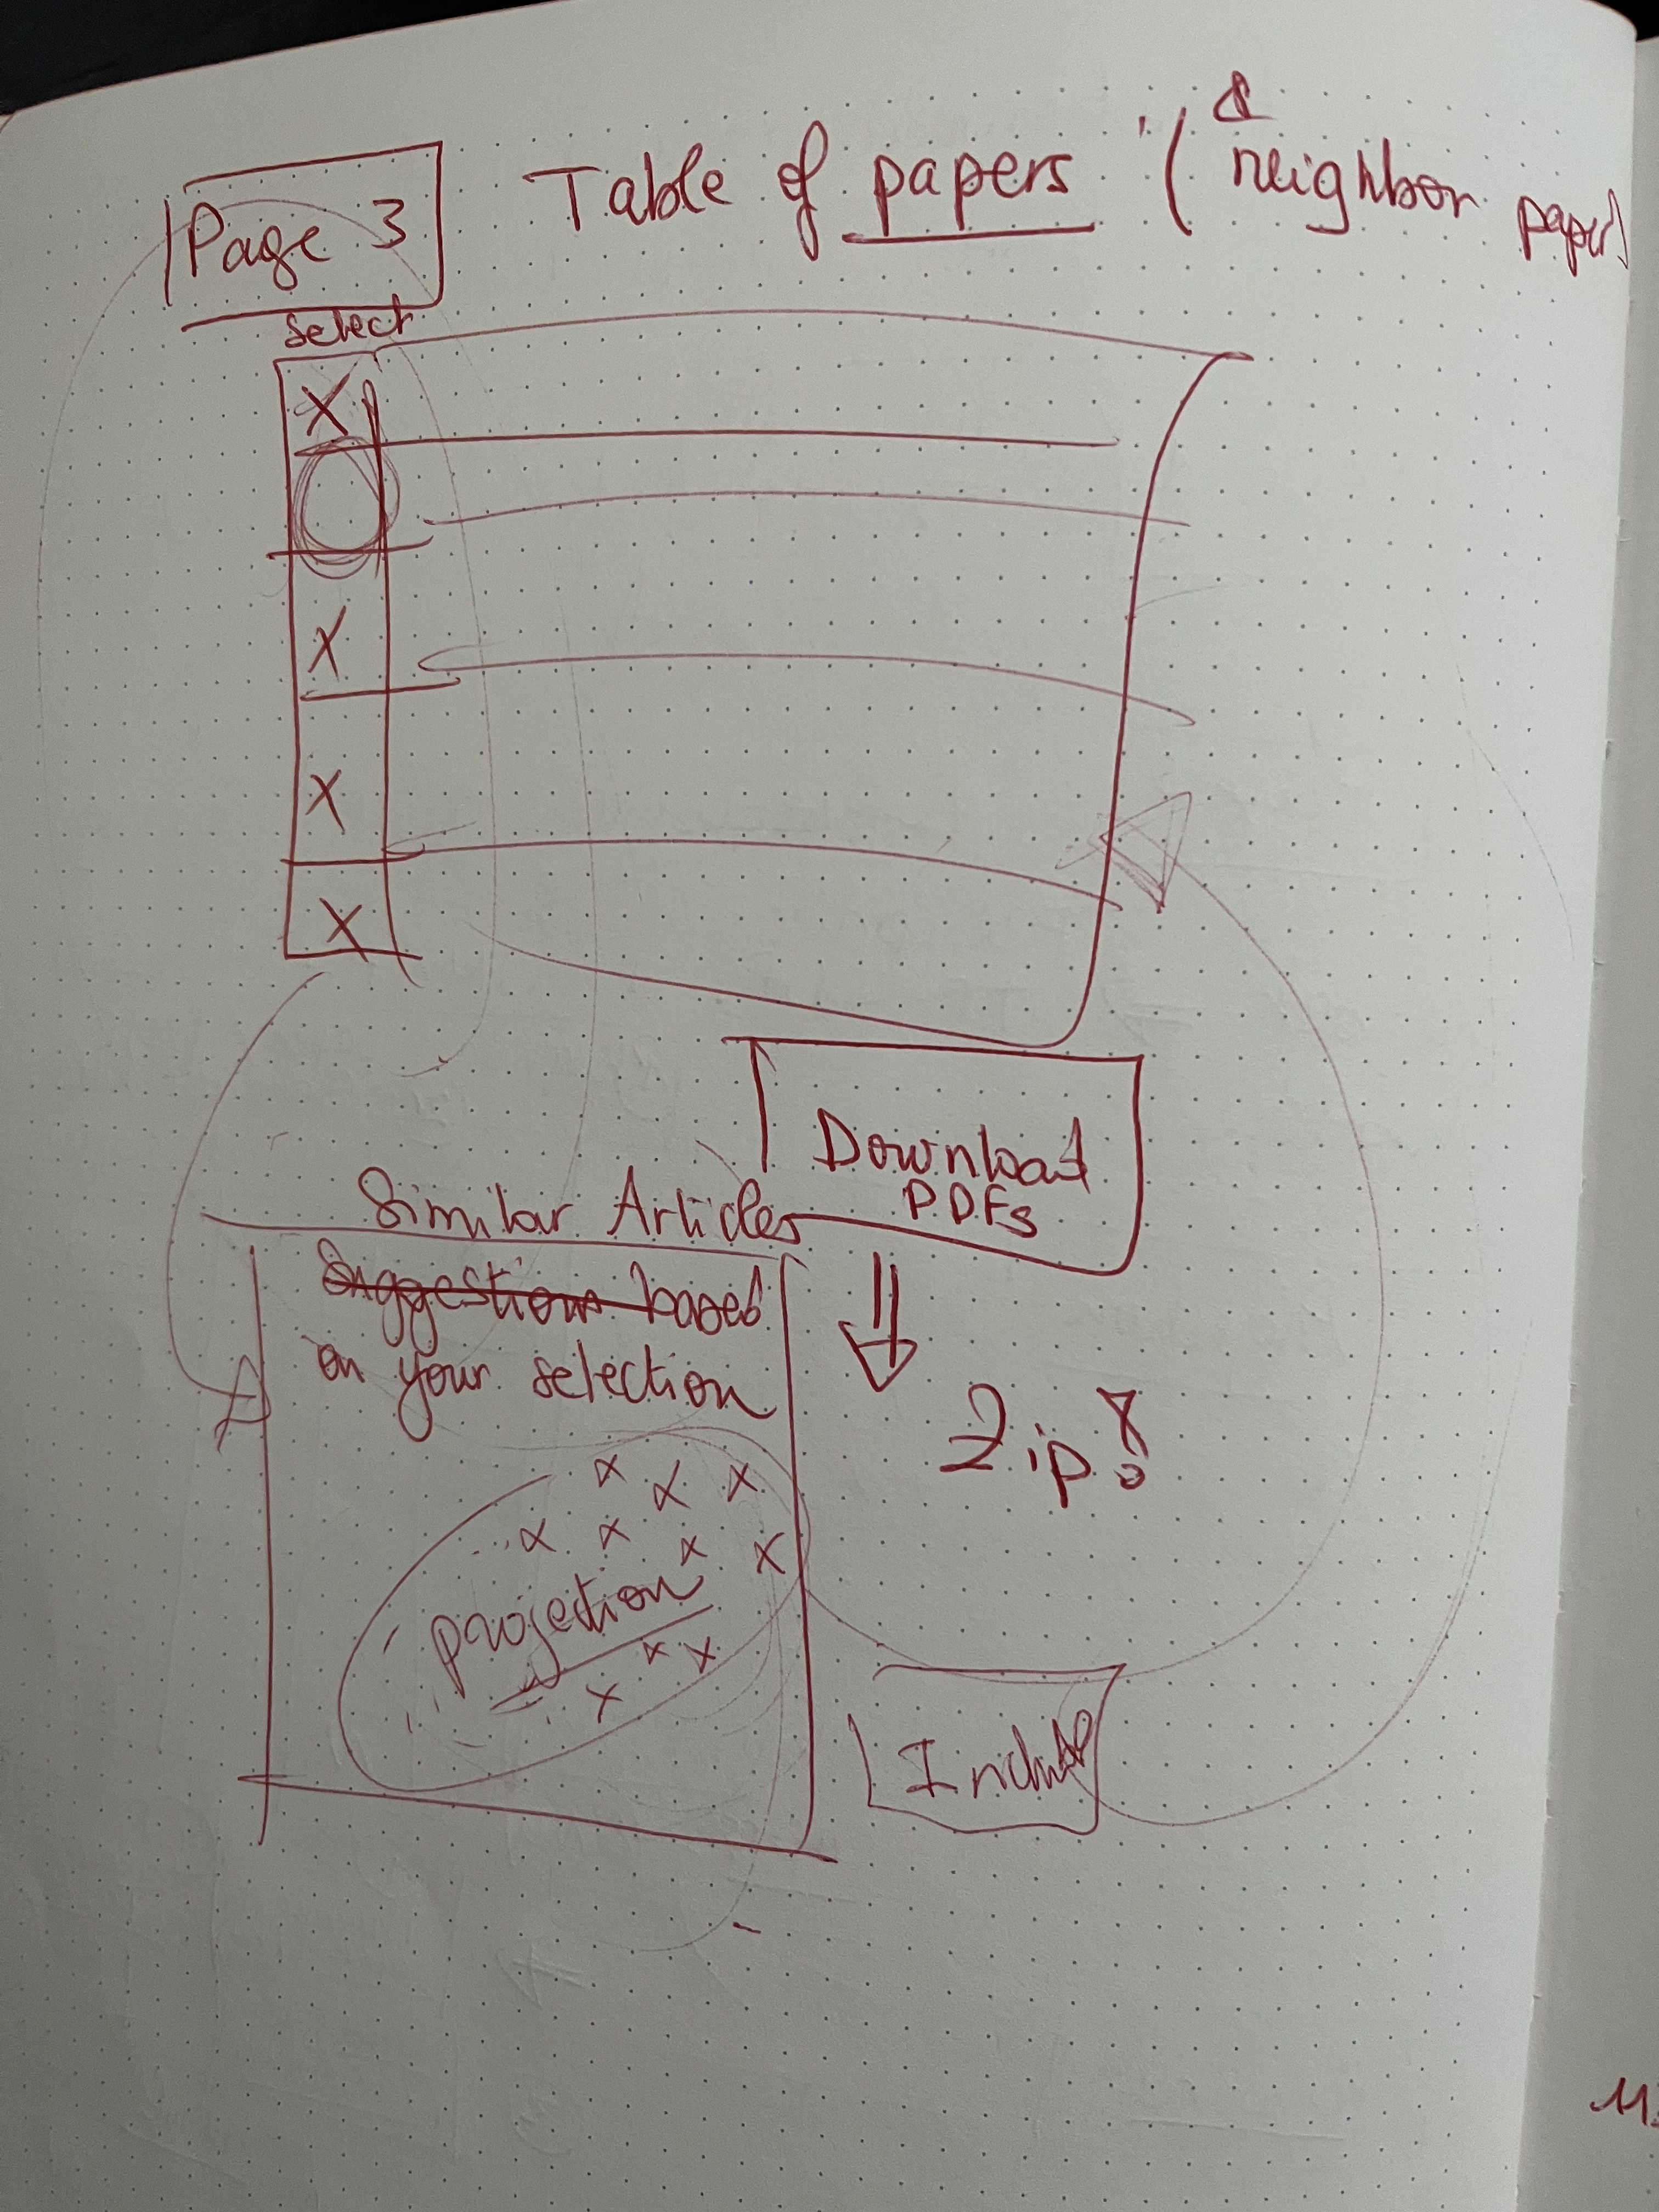 Page 3
Table of papers (& neighbor paper)
select
X
X
X
X
Download
PDFs
Similar Articles
Suggestions based
on your selection
Zip?
projection
Include